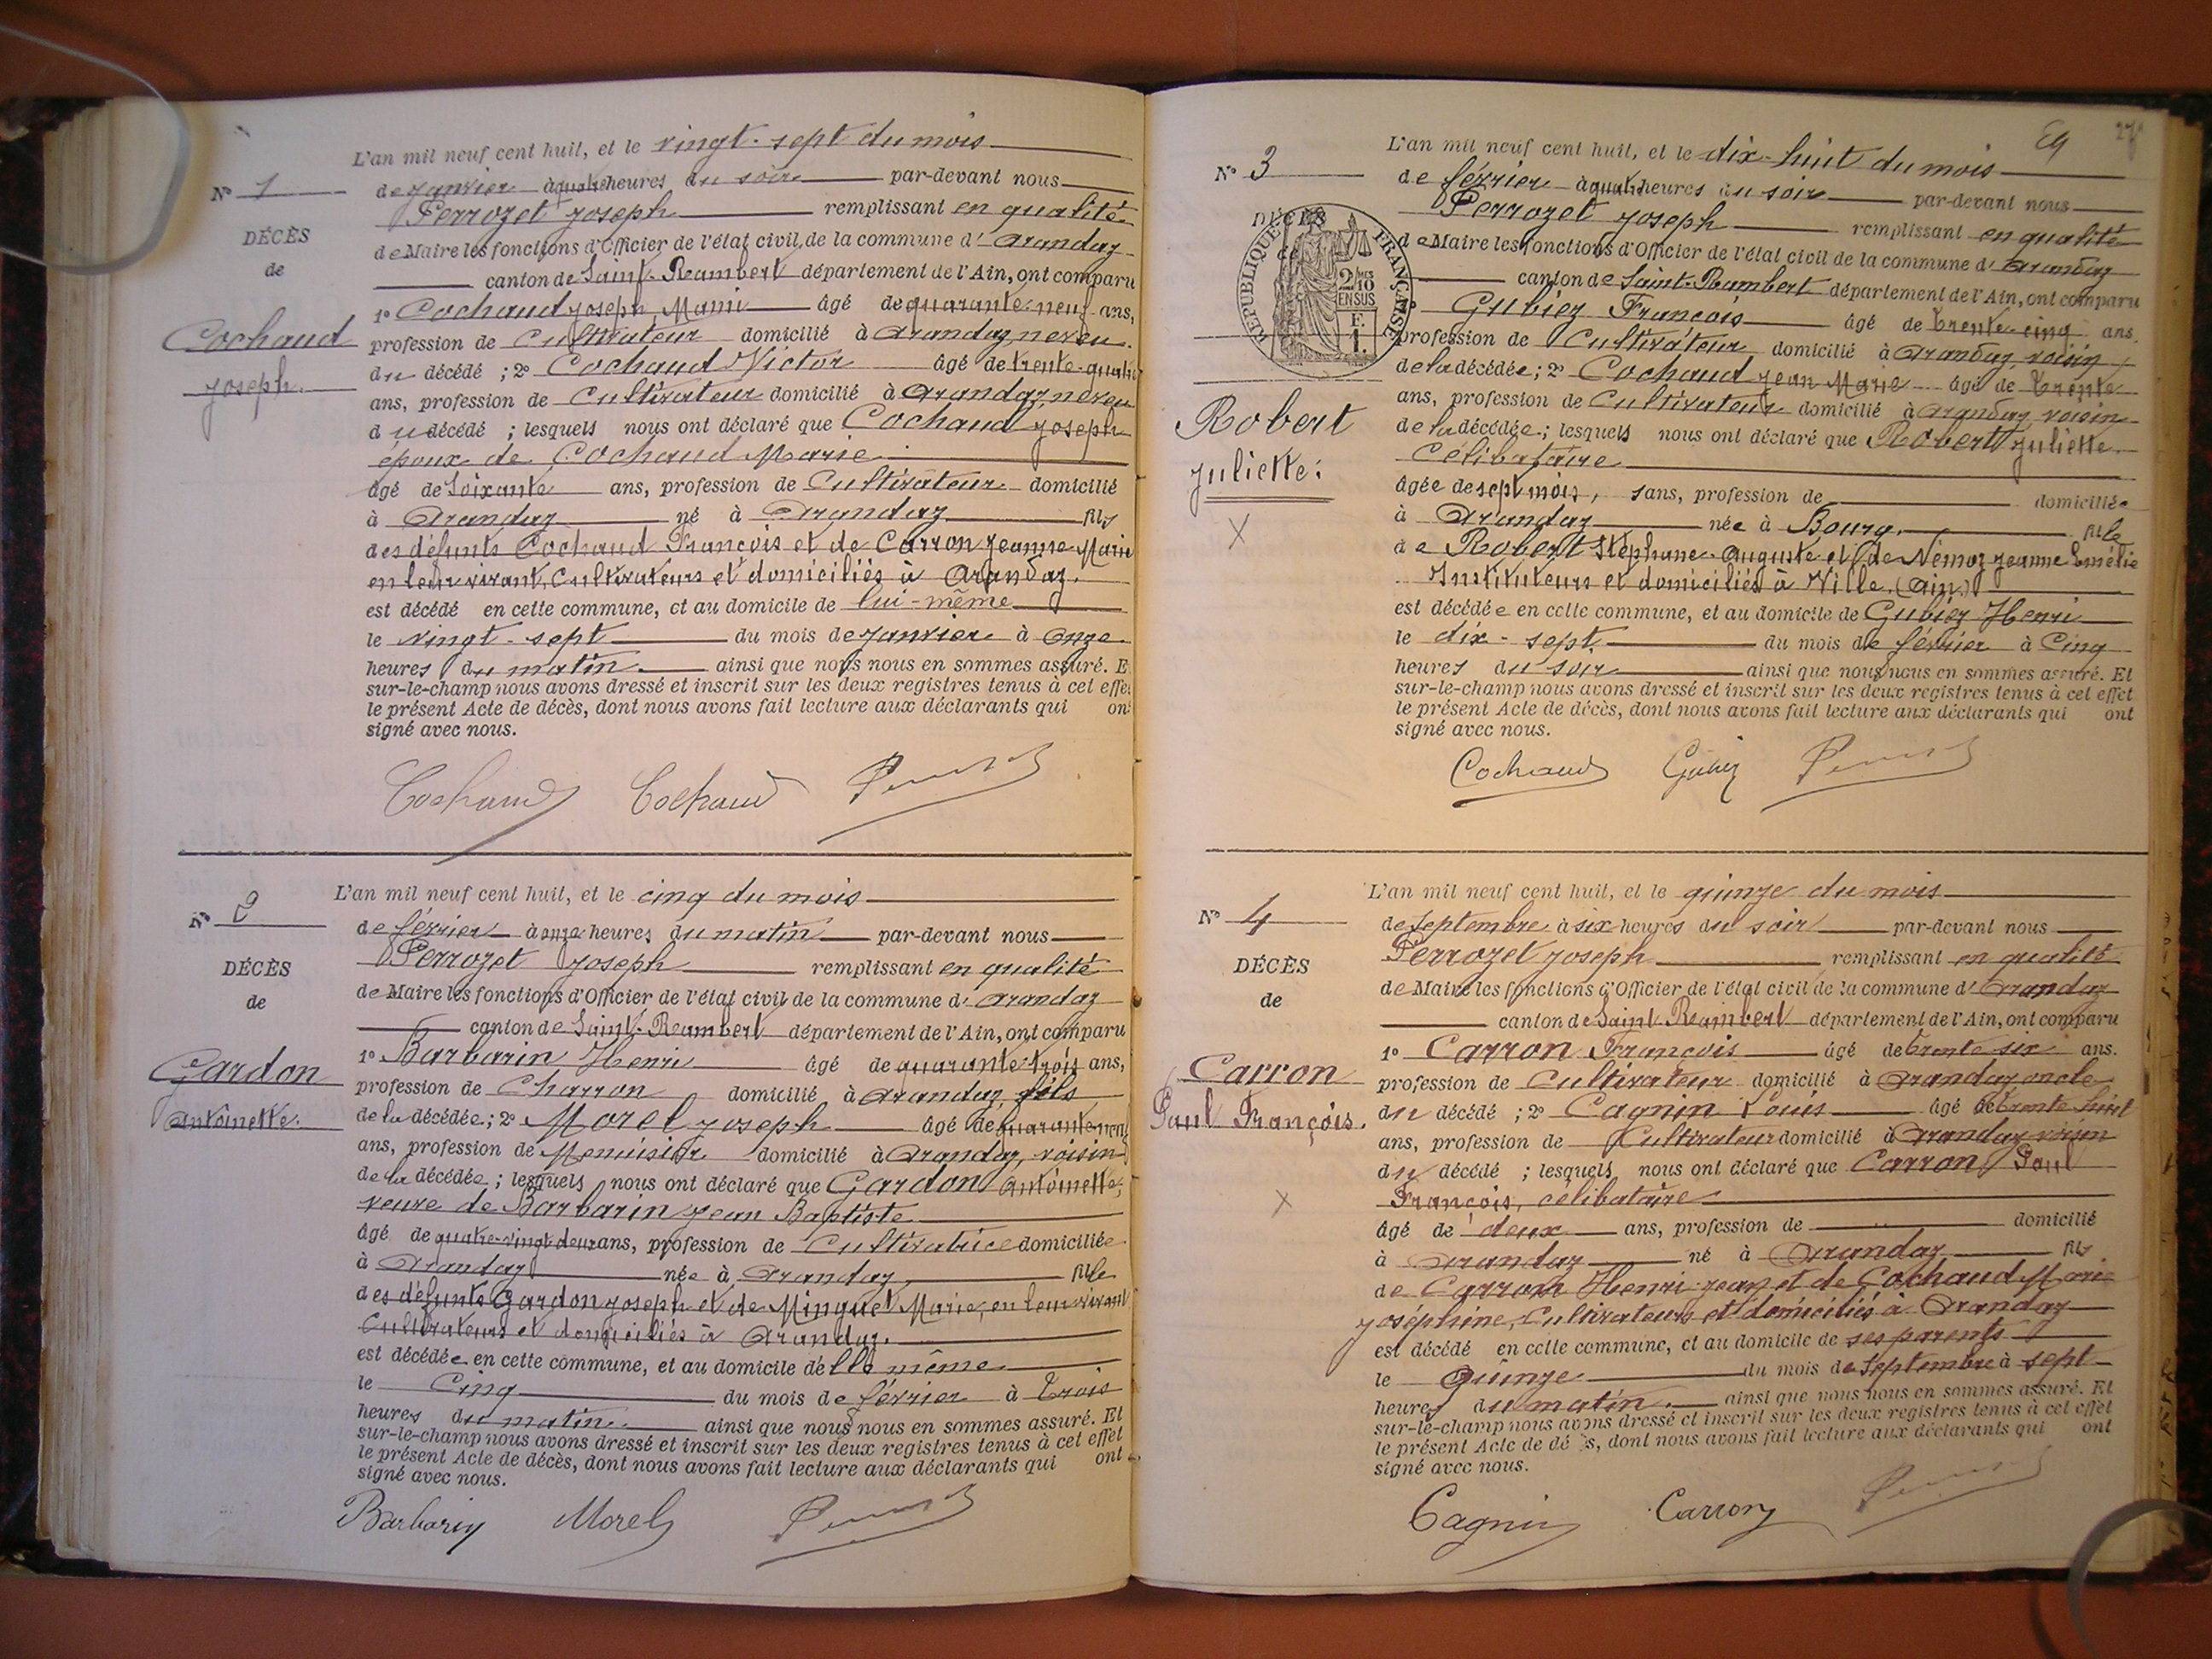 L'an mil neuf cent huit, et le vingt-sept du mois
N° 1
de janvier à quatre heures du soir par-devant nous
Perrozet Joseph remplissant en qualité
DÉCÈS
de Maire les fonctions d'Officier de l'état civil, de la commune d' Arandaz
de
canton de Saint-Rambert département de l'Ain, ont comparu
1° Cochaud Joseph, Marie âgé de quarante-neuf ans,
Cochaud
profession de Cultivateur domicilié à Arandaz neveu
du décédé ; 2° Cochaud Victor âgé de trente-quatre
Joseph.
ans, profession de Cultivateur domicilié à Arandaz, neveu
du décédé ; lesquels nous ont déclaré que Cochaud Joseph
époux de Cochaud Marie
âgé de Soixante ans, profession de Cultivateur domicilié
à Arandaz né à Arandaz fils
des défunts Cochaud François et de Carron Jeanne-Marie
en leur vivant, Cultivateurs et domiciliés à Arandaz.
est décédé en cette commune, et au domicile de lui-même
le vingt-sept du mois de janvier à onze
heures du matin ainsi que nous nous en sommes assuré. E
sur-le-champ nous avons dressé et inscrit sur les deux registres tenus à cet effe
le présent Acte de décès, dont nous avons fait lecture aux déclarants qui on
signé avec nous.
Cochaud Cochaud
L'an mil neuf cent huit, et le cinq du mois
N° 2
de février à onze heures du matin par-devant nous
Perrozet Joseph remplissant en qualité
DÉCÈS
de Maire les fonctions d'Officier de l'état civil de la commune d' Arandaz
de
canton de Saint-Rambert département de l'Ain, ont comparu
1° Barbarin Henri âgé de quarante-trois ans,
Gardon
profession de Charron domicilié à Arandaz, fils
Antoinette.
de la décédée ; 2° Morel Joseph âgé de quarante-neuf
ans, profession de Menuisier domicilié à Arandaz, voisin
de la décédée ; lesquels nous ont déclaré que Gardon Antoinette,
veuve de Barbarin Jean Baptiste
âgé de quatre-vingt-deux ans, profession de Cultivatrice domiciliée
à Arandaz née à Arandaz, fille
des défunts Gardon Joseph et de Minguet Marie, en leur vivant
Cultivateurs et domiciliés à Arandaz.
est décédée en cette commune, et au domicile d'elle même
le Cinq du mois de février à trois
heures du matin ainsi que nous nous en sommes assuré. Et
sur-le-champ nous avons dressé et inscrit sur les deux registres tenus à cet effet
le présent Acte de décès, dont nous avons fait lecture aux déclarants qui ont
signé avec nous.
Barbarin Morel
L'an mil neuf cent huit, et le dix-huit du mois
N° 3
de février à quatre heures du soir par-devant nous
Perrozet Joseph remplissant en qualité
DÉCÈS
de
RÉPUBLIQUE FRANÇAISE
2/10 EN SUS
F. 1.
de Maire les fonctions d'Officier de l'état civil de la commune d' Arandaz
canton de Saint-Rambert département de l'Ain, ont comparu
Gubiez François âgé de trente-cinq ans.
profession de Cultivateur domicilié à Arandaz, voisin
de la décédée ; 2° Cochaud Jean Marie âgé de trente
ans, profession de Cultivateur domicilié à Arandaz, voisin
Robert
de la décédée ; lesquels nous ont déclaré que Robert Juliette
Célibataire
Juliette.
âgée de sept mois, sans, profession de domiciliée
X
à Arandaz née à Bourg, fille
de Robert Stéphane-Auguste et de Némoz Jeanne Emélie
Instituteurs et domiciliés à Ville, (Ain)
est décédée en cette commune, et au domicile de Gubiez Henri
le dix-sept du mois de février à Cinq
heures du soir ainsi que nous nous en sommes assuré. Et
sur-le-champ nous avons dressé et inscrit sur les deux registres tenus à cet effet
le présent Acte de décès, dont nous avons fait lecture aux déclarants qui ont
signé avec nous.
Cochaud Gubiez
L'an mil neuf cent huit, et le quinze du mois
N° 4
de Septembre à six heures du soir par-devant nous
Perrozet Joseph remplissant en qualité
DÉCÈS
de Maire les fonctions d'Officier de l'état civil de la commune d' Arandaz
de
canton de Saint-Rambert département de l'Ain, ont comparu
1° Carron François âgé de trente six ans.
Carron
profession de Cultivateur domicilié à Arandaz oncle
Paul François.
du décédé ; 2° Cagnin Louis âgé de trente huit
ans, profession de Cultivateur domicilié à Arandaz voisin
du décédé ; lesquels nous ont déclaré que Carron Paul
X
François, célibataire
âgé de deux ans, profession de domicilié
à Arandaz né à Arandaz fils
de Carron Henri-Jean et de Cochaud Marie
Joséphine, Cultivateurs et domiciliés à Arandaz
est décédé en cette commune, et au domicile de ses parents
le Quinze du mois de Septembre à sept
heures du matin. ainsi que nous nous en sommes assuré. Et
sur-le-champ nous avons dressé et inscrit sur les deux registres tenus à cet effet
le présent Acte de décès, dont nous avons fait lecture aux déclarants qui ont
signé avec nous.
Cagnin Carron